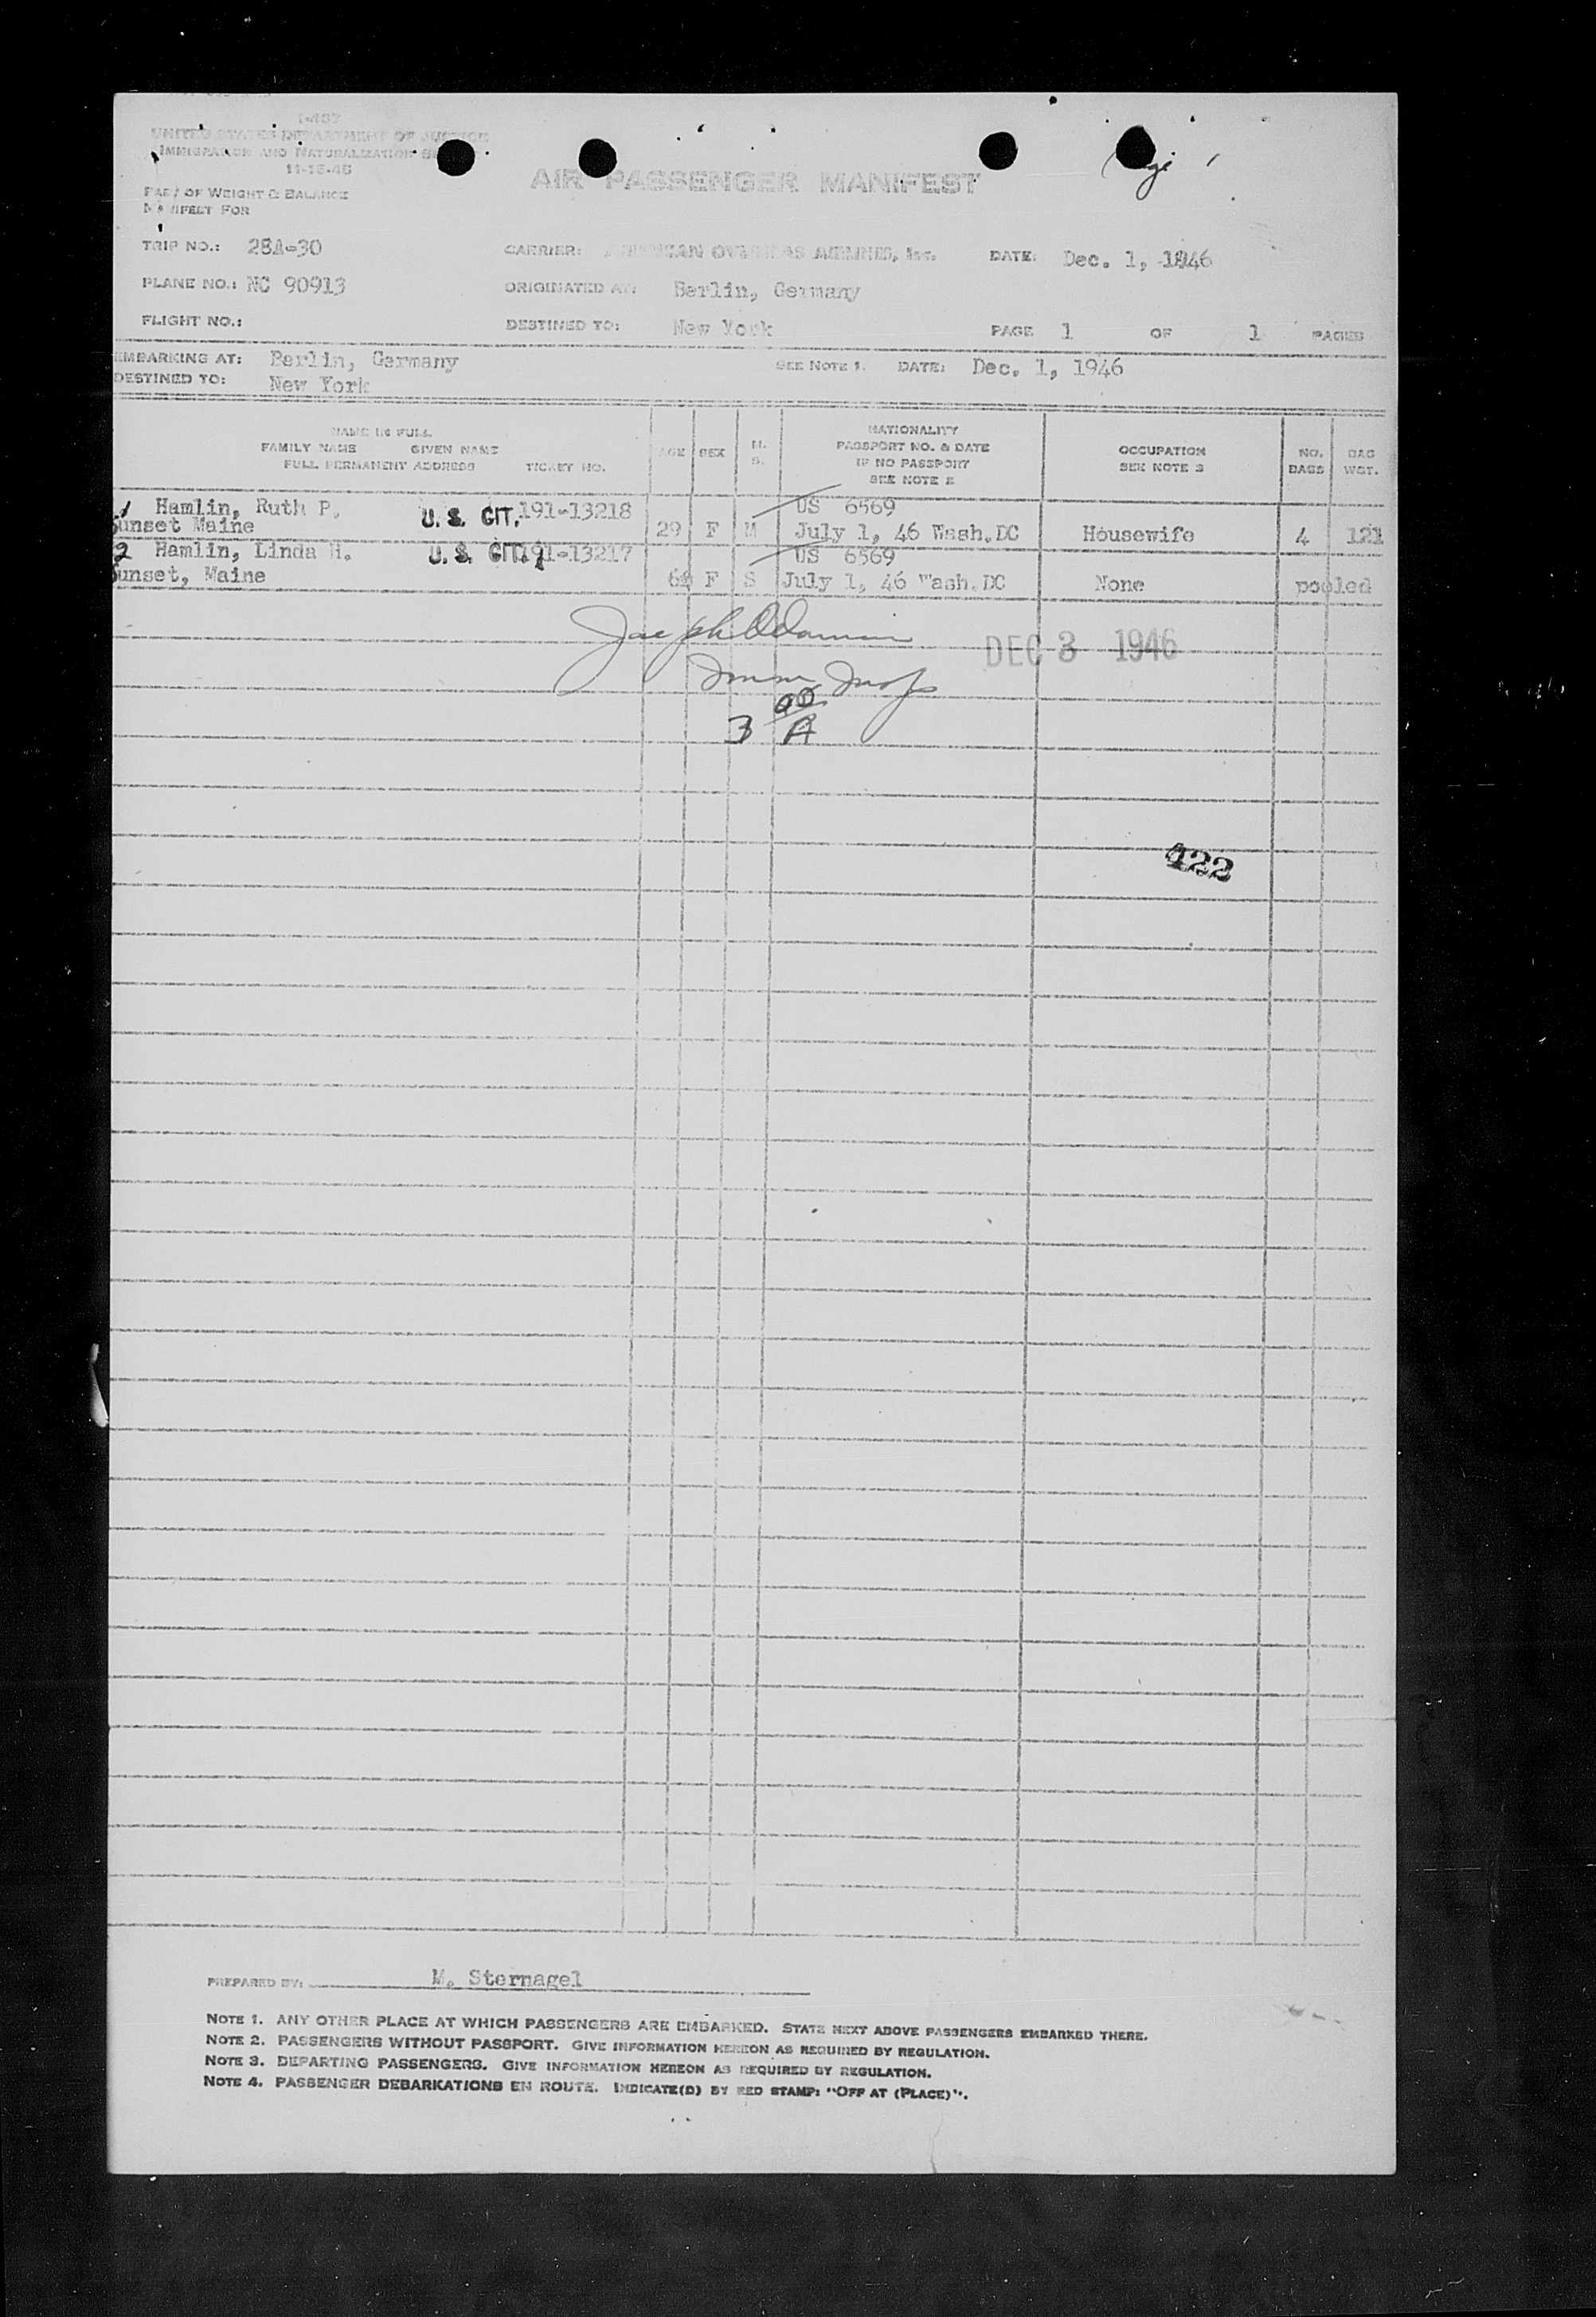 I-487
UNITED STATES DEPARTMENT OF JUSTICE
IMMIGRATION AND NATURALIZATION
11-15-45
AIR PASSENGER MANIFEST
PART OF WEIGHT & BALANCE
MANIFEST FOR
TRIP NO.: 28A-30 CARRIER: AMERICAN OVERSEAS AIRLINES, Inc. DATE: Dec. 1, 1946
PLANE NO.: NC 90913 ORIGINATED AT: Berlin, Germany
FLIGHT NO.: DESTINED TO: New York PAGE 1 OF 1 PAGES
EMBARKING AT: Berlin, Germany SEE NOTE 1. DATE: Dec. 1, 1946
DESTINED TO: New York
NAME IN FULL
FAMILY NAME GIVEN NAME
FULL PERMANENT ADDRESS TICKET NO.
AGE SEX M. S.
NATIONALITY
PASSPORT NO. & DATE
IF NO PASSPORT
SEE NOTE 2
OCCUPATION
SEE NOTE 3
NO. BAGS
BAG WGT.
1 Hamlin, Ruth P. U. S. CIT. 191-13218 US 6569
Sunset Maine 29 F M July 1, 46 Wash.DC Housewife 4 121
2 Hamlin, Linda H. U. S. CIT. 191-13217 US 6569
Sunset, Maine F S July 1, 46 Wash.DC None pooled
Joseph
DEC 3 1946
Imm Insp
3 A
422
PREPARED BY: M. Sternagel
NOTE 1. ANY OTHER PLACE AT WHICH PASSENGERS ARE EMBARKED. STATE NEXT ABOVE PASSENGERS EMBARKED THERE.
NOTE 2. PASSENGERS WITHOUT PASSPORT. GIVE INFORMATION HEREON AS REQUIRED BY REGULATION.
NOTE 3. DEPARTING PASSENGERS. GIVE INFORMATION HEREON AS REQUIRED BY REGULATION.
NOTE 4. PASSENGER DEBARKATIONS EN ROUTE. INDICATE(D) BY RED STAMP: "OFF AT (PLACE)".